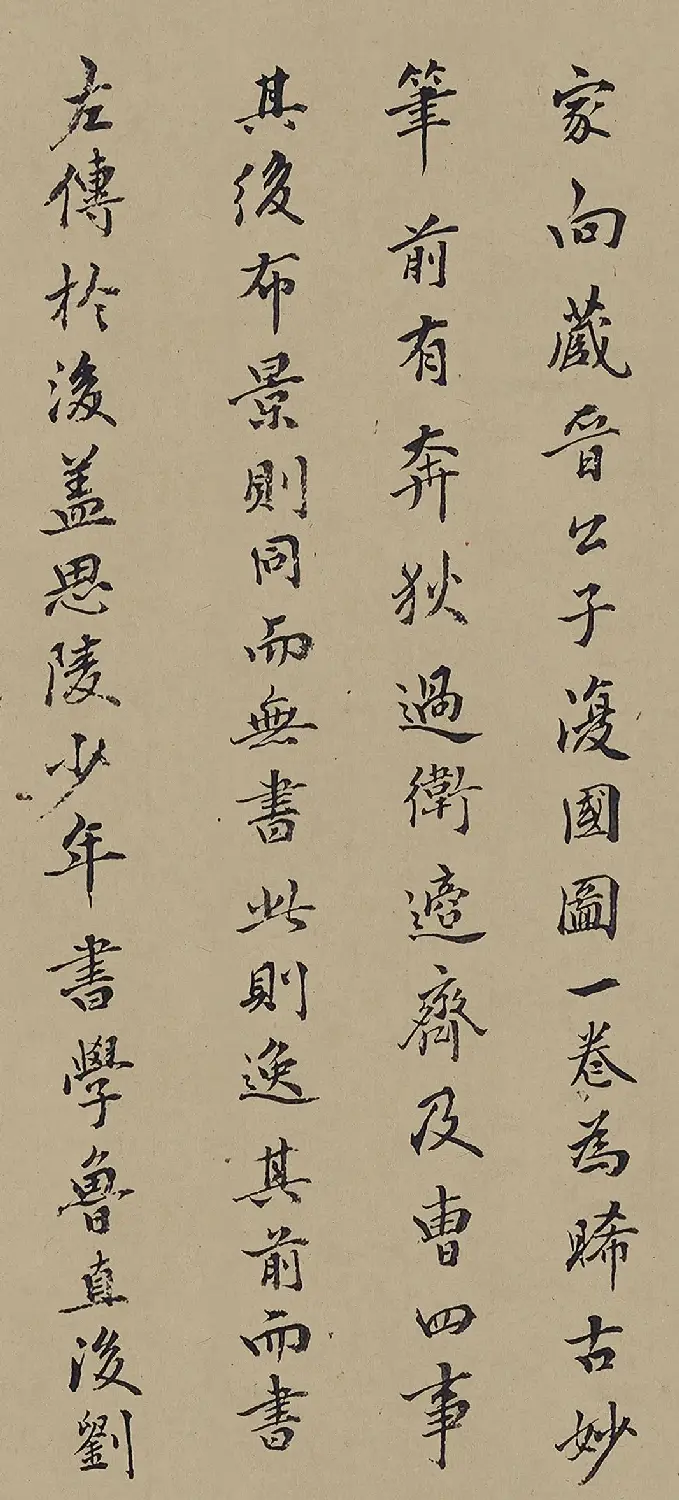 家向蔵晉公子復國圖一卷為睎古妙
筆前有奔狄過衛適齊及曹四事
其後布景則同而無書此則逸其前而書
左傳於後盖思陵少年書學魯直後劉